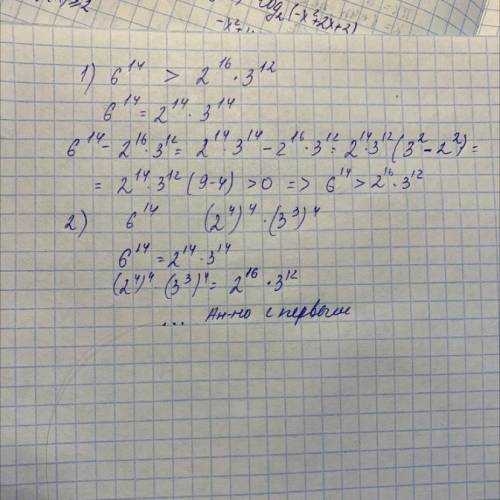 log₂(-x²+2x+2)
1) 6¹⁴ > 2¹⁶·3¹²
6¹⁴ = 2¹⁴·3¹⁴
6¹⁴ - 2¹⁶·3¹² = 2¹⁴·3¹⁴ - 2¹⁶·3¹² = 2¹⁴·3¹²(3² - 2²) =
= 2¹⁴·3¹²(9-4) > 0 => 6¹⁴ > 2¹⁶·3¹²
2) 6¹⁴ (2⁴)⁴·(3³)⁴
6¹⁴ = 2¹⁴·3¹⁴
(2⁴)⁴·(3³)⁴ = 2¹⁶·3¹²
... Ан-но с первым